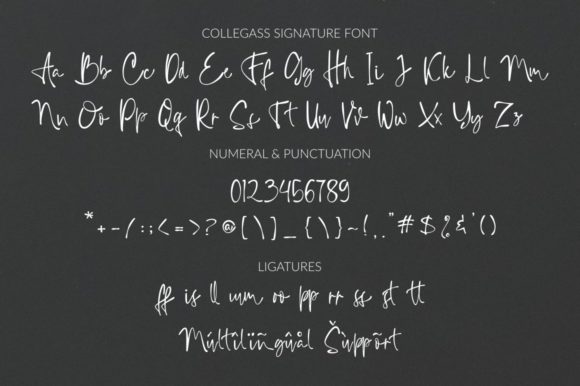 COLLEGASS SIGNATURE FONT
Aa Bb Cc Dd Ee Ff Gg Hh Ii J Kk Ll Mm
Nn Oo Pp Qq Rr Ss Tt Uu Vv Ww Xx Yy Zz
NUMERAL & PUNCTUATION
0123456789
*+-/:;<=>?@[\]_{\}~!,."#$%&'()
LIGATURES
ff is ll mm oo pp rr ss st tt
Múltîlïñgûål Šùppõrt